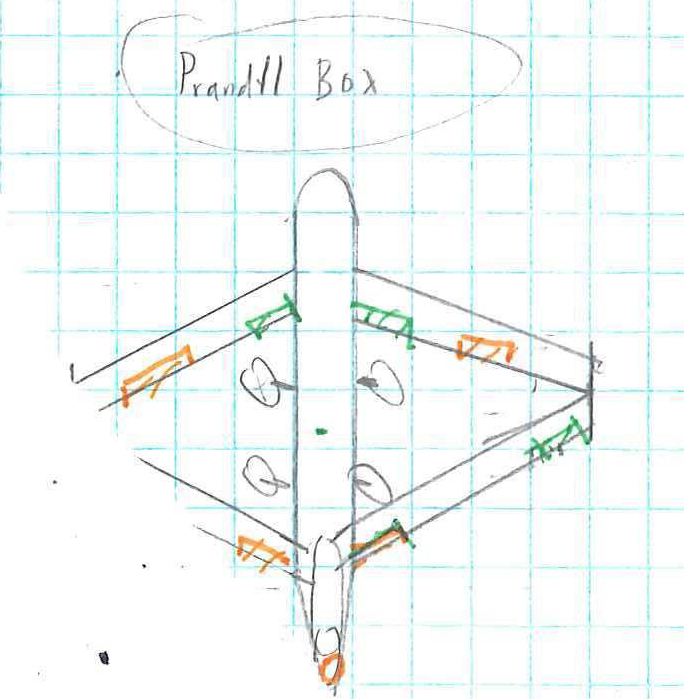 Prandtl Box